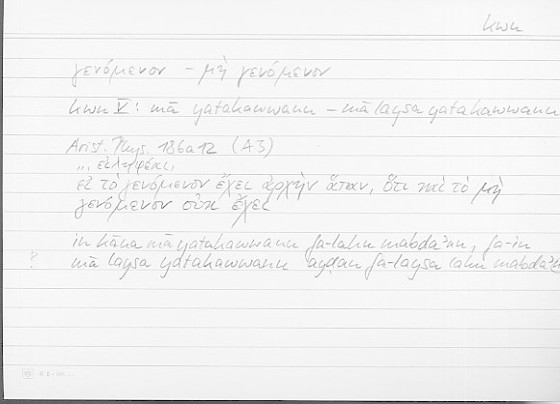 kwn
γενόμενον – μὴ γενόμενον
kwn V: mā yatakawwanu – mā laysa yatakawwanu
Arist. Phys. 186a12 (A3)
"... εἰληφέναι,
εἰ τὸ γενόμενον ἔχει ἀρχὴν ἅπαν, ὅτι καὶ τὸ μὴ
γενόμενον οὐκ ἔχει
in kāna mā yatakawwanu fa-lahu mabda'un, fa-in
? mā laysa yatakawwanu ayḍan fa-laysa lahu mabda'